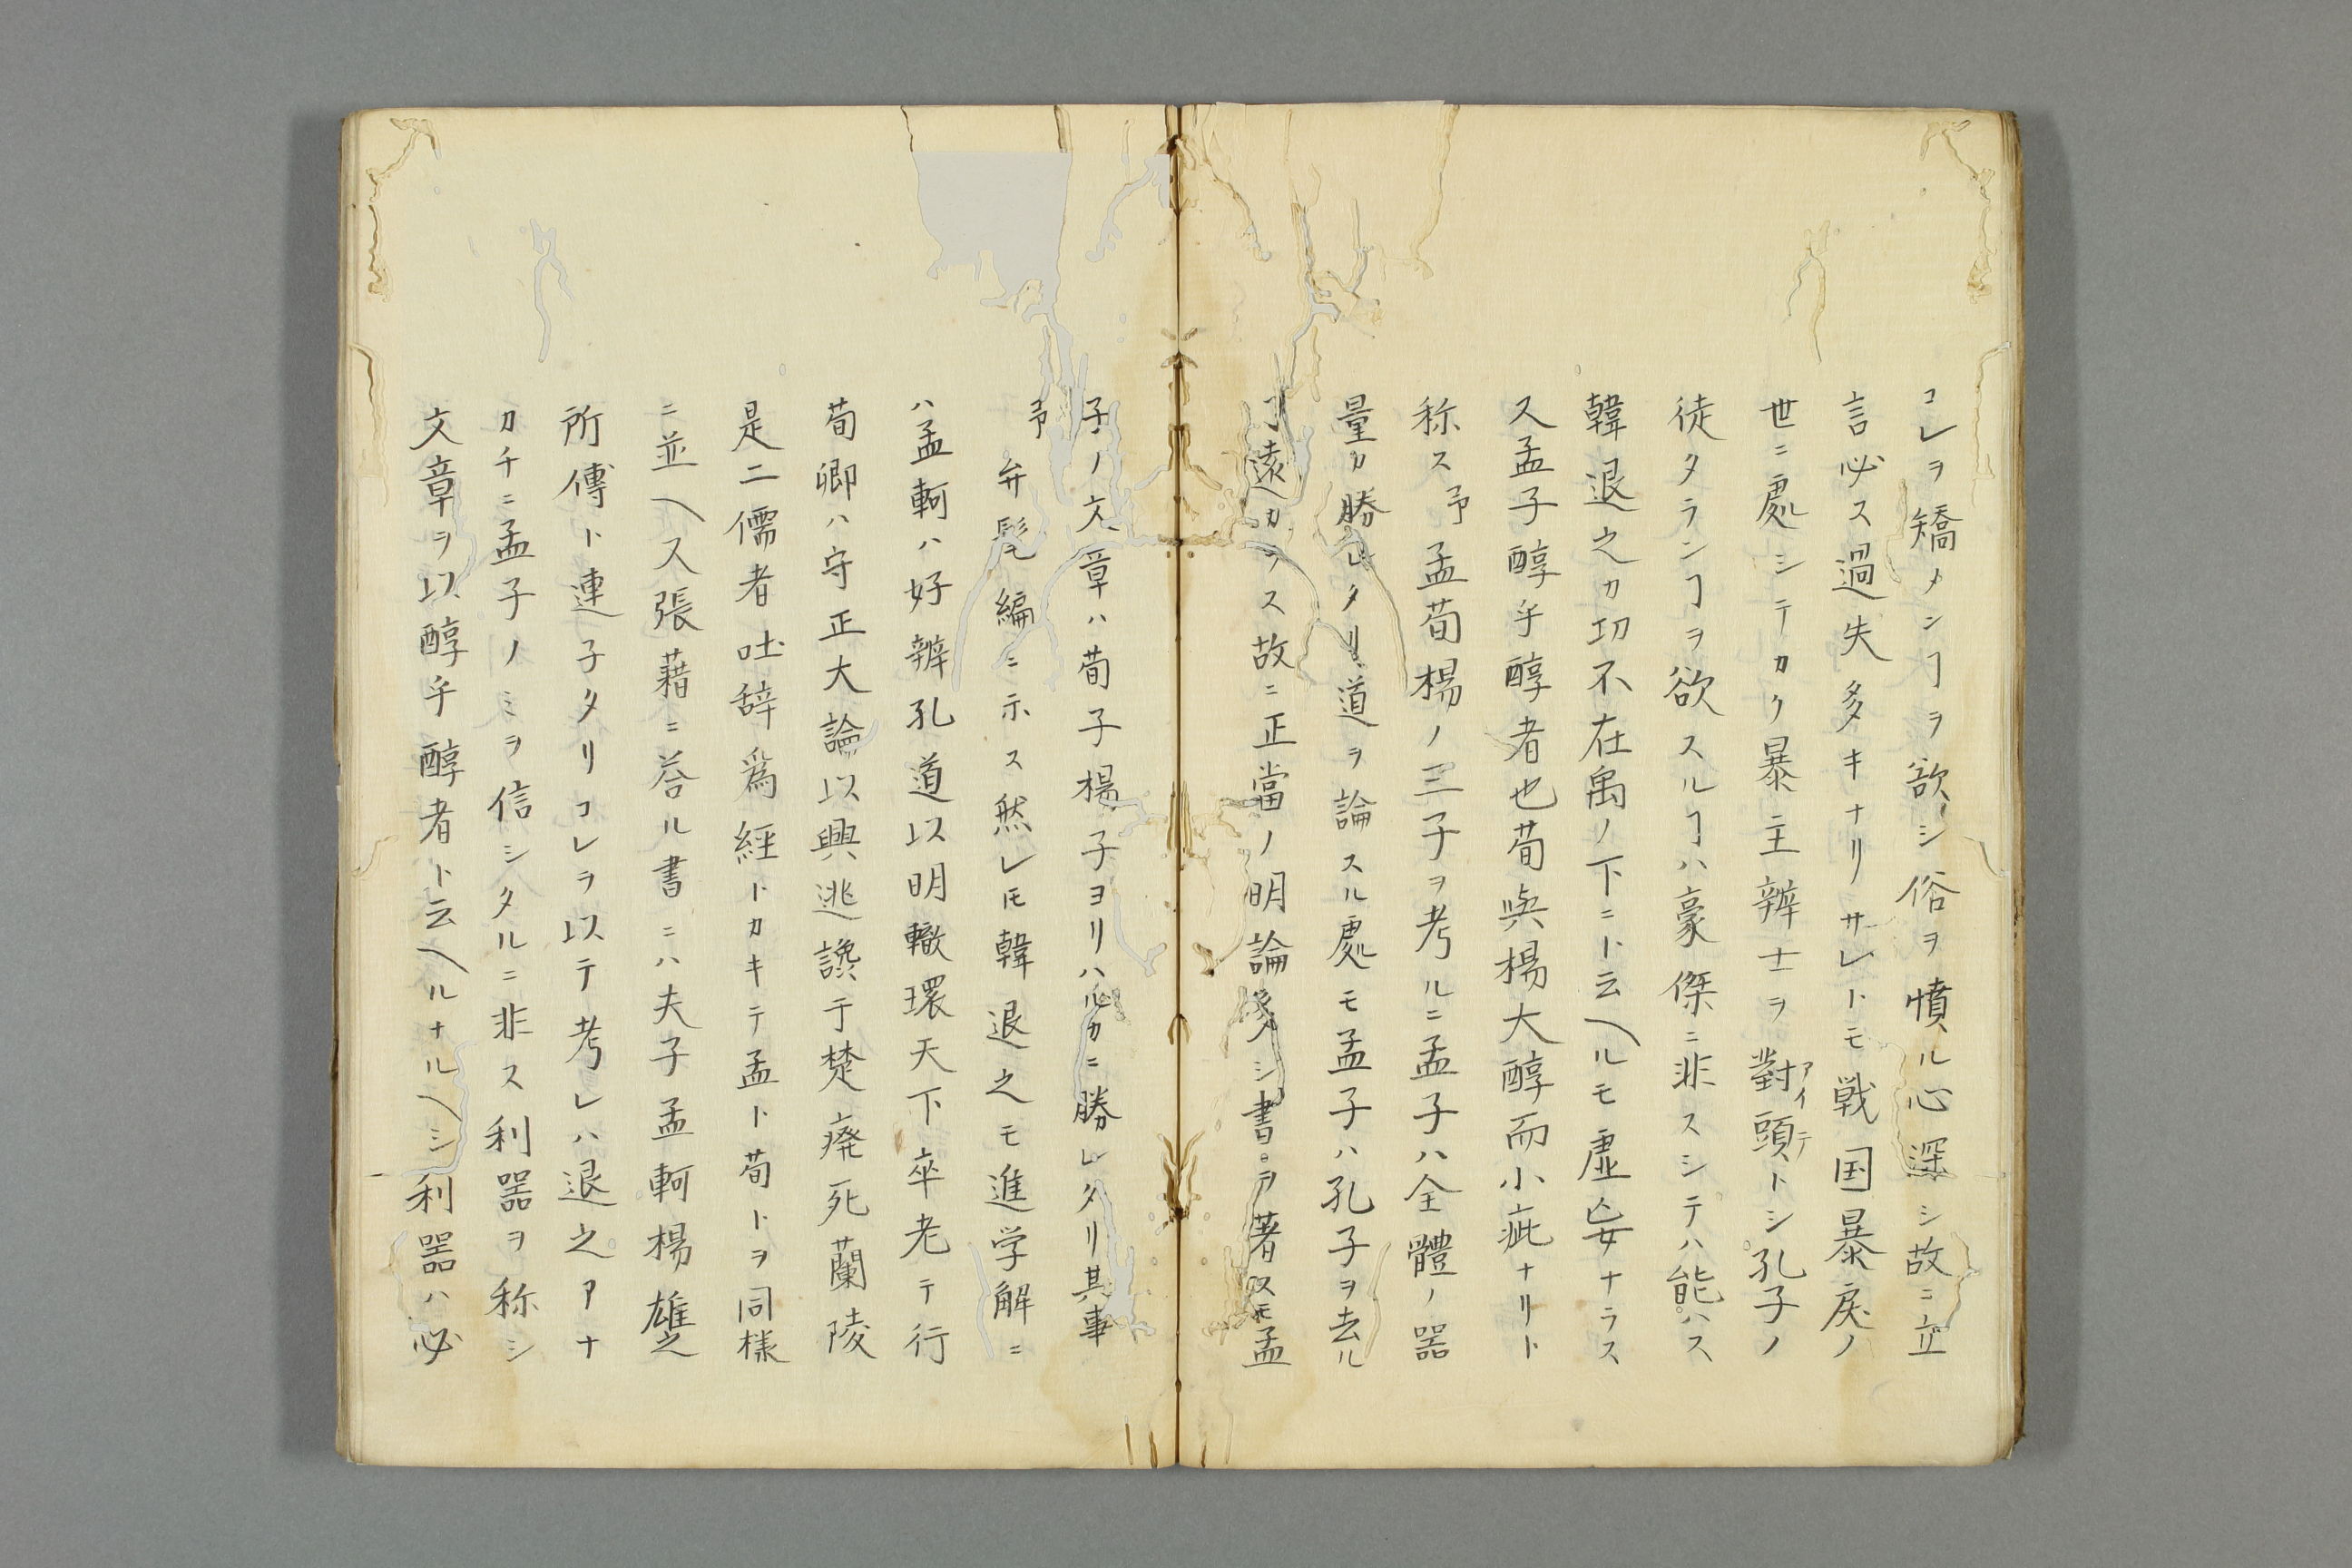 コレヲ矯メンヿヲ欲シ俗ヲ憤ル心深シ故ニ立
言必ス過失多キナリサレトモ戦国暴戻ノ
世ニ處シテカク暴主辨士ヲ對頭アイテトシ孔子ノ
徒タランヿヲ欲スルヿハ豪傑ニ非スシテハ能ハス
韓退之カ功不在禹ノ下ニト云ヘルモ虚妄ナラス
又孟子醇乎醇者也荀與楊大醇而小疵ナリト
称ス予孟荀楊ノ三子ヲ考ルニ孟子ハ全體ノ器
量カ勝レタリ道ヲ論スル處モ孟子ハ孔子ヲ去ル
ヿ遠カラス故ニ正當ノ明論多シ書ヲ著スモ孟
子ノ文章ハ荀子楊子ヨリハルカニ勝レタリ其事
予弁髦編ニ示ス然レモ韓退之モ進学解ニ
ハ孟軻ハ好辨孔道以明轍環天下卒老于行
荀卿ハ守正大論以興逃讒于楚癈死蘭陵
是二儒者吐辞為經トカキテ孟ト荀トヲ同樣
ニ並ヘ又張藉ニ荅ル書ニハ夫子孟軻楊雄之
所傳ト連子タリコレヲ以テ考レハ退之アナ
カチニ孟子ノミヲ信シタルニ非ス利噐ヲ称シ
文章ヲ以醇乎醇者ト云ヘルナルヘシ利噐ハ必